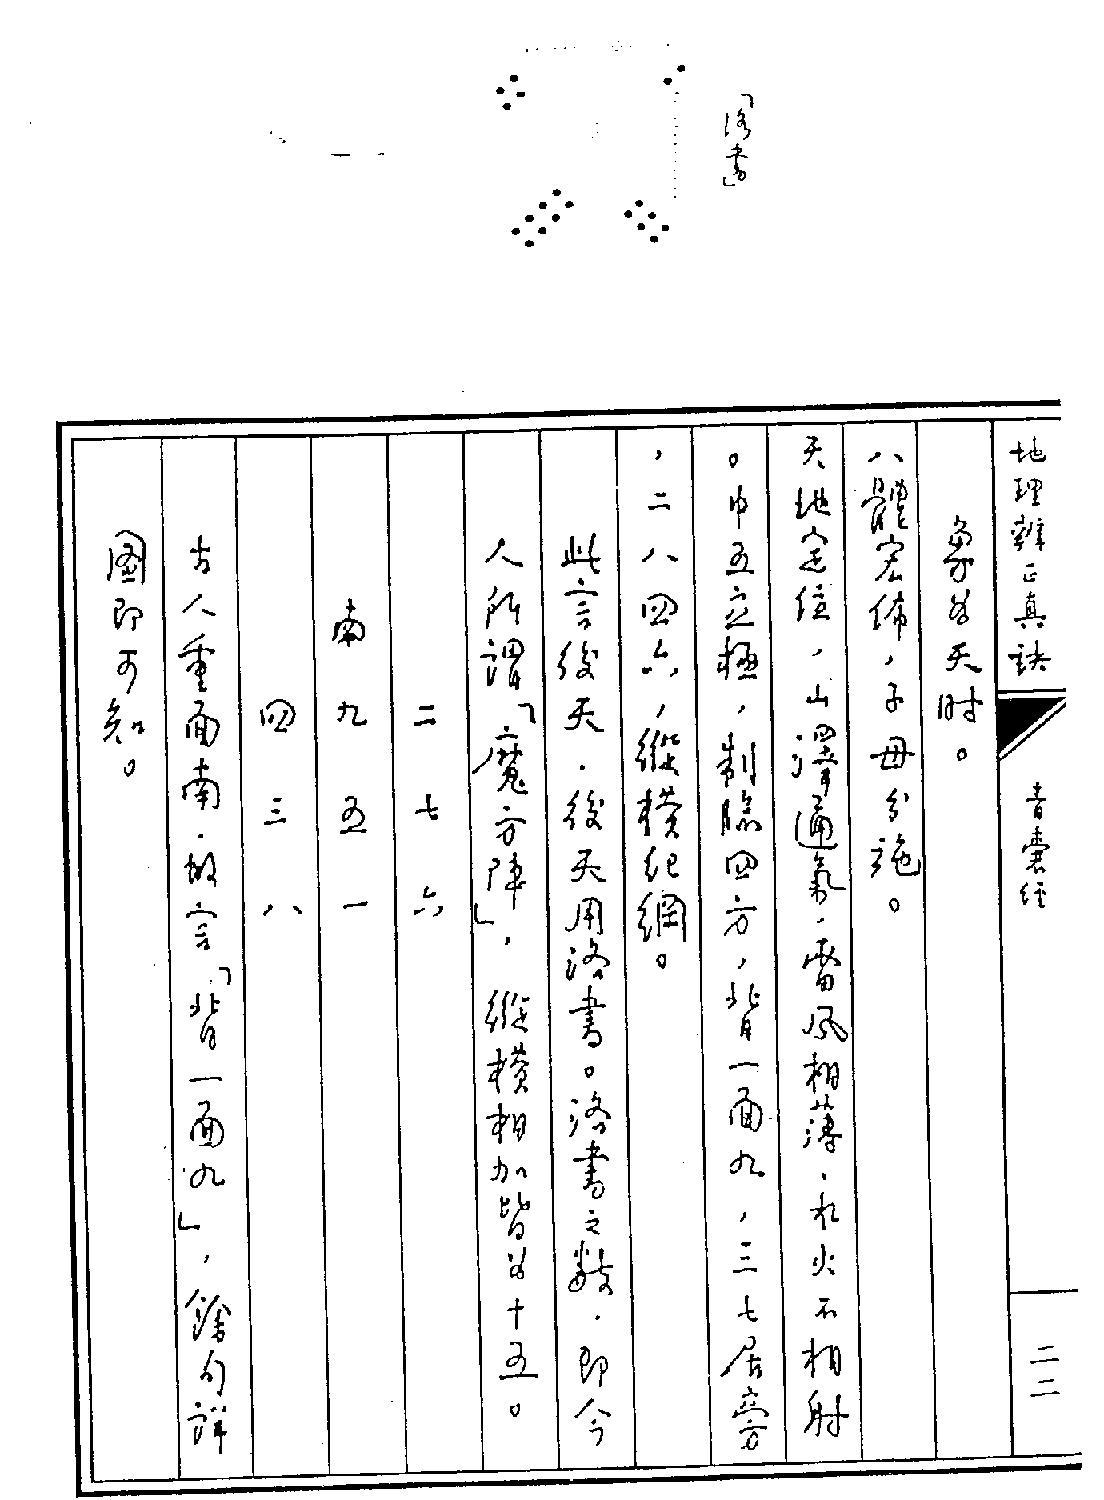 「洛書」
地理辨正真訣
青囊經
二二
象若天時。
八體宏佈，子母分施。
天地定位，山澤通氣，雷風相薄，水火不相射
。中五立極，制臨四方，背一面九，三七居旁
，二八四六，縱橫紀綱。
此言後天，後天用洛書。洛書之數，即今
人所謂「魔方陣」，縱橫相加皆爲十五。
二七六
南九五一
四三八
古人重面南，故言「背一面九」，餘句詳
圖即可知。